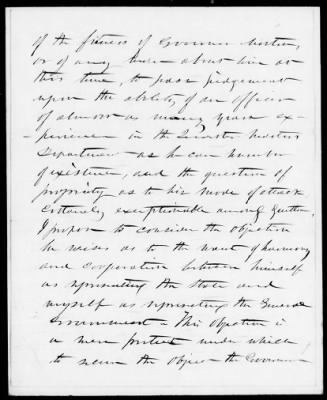 of the fitness of Governor Morton,
or of any man about him at
this time, to pass judgement
upon the ability of an officer
of almost as many years ex-
-perience in the Quarter Masters
Department as he can number
of existence, and the question of
propriety as to his mode of attack
certainly exceptionable among gentlemen,
I propose to consider the objection
he raises as to the want of harmony
and cooperation between himself
as representing the State and
myself as representing the General
Government. This objection is
a mere pretext under which
to secure the object the Governor